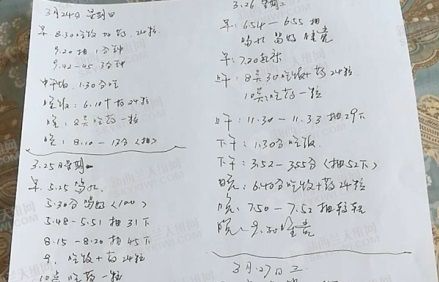 3月24日 星期日
早 8.30吃饭 十药 24粒
9.20 抽 1分钟
9.42-45 3分钟
中午 1.30分吃
吃饭 6.10十药24粒
晚 8点吃药一粒
晚 8.10-13分(抽)
3.25日星期一
早 5.25
5.30分 (100)
5.48-5.51 抽31下
8.15-8.20 抽45下
9. 吃饭+药24粒
10点 吃药一粒
3.26 星期二
早 6.54-6.55 抽
早 7.20
上午 8点30吃饭+药24粒
10点吃药一粒
上午 11.30-11.33 抽29下
下午 1.30分吃饭
下午 3.52-355分(抽52下)
晚 640分吃饭+药24粒
晚 7.50-7.52 抽较轻
晚 9.30
3月27日 三